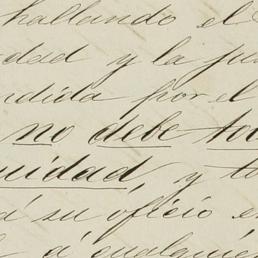 hallando el
dad y la
ndida por el
no debe
uidad, y
á su oficio
á cualquier